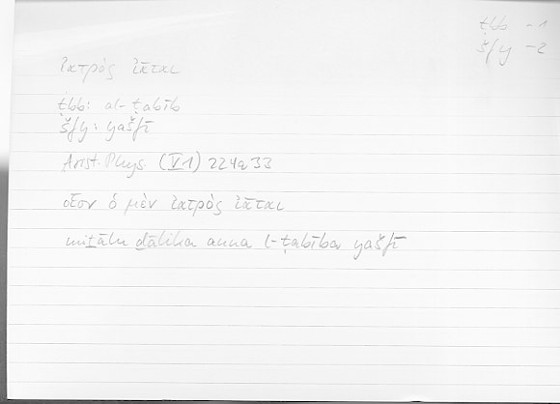 ṭbb - 1
šfy - 2
ἰατρός ἰᾶται
ṭbb: al-ṭabīb
šfy: yašfī
Arist. Phys. (V 1) 224a33
οἷον ὁ μὲν ἰατρὸς ἰᾶται
miṯālu ḏālika anna l-ṭabība yašfī